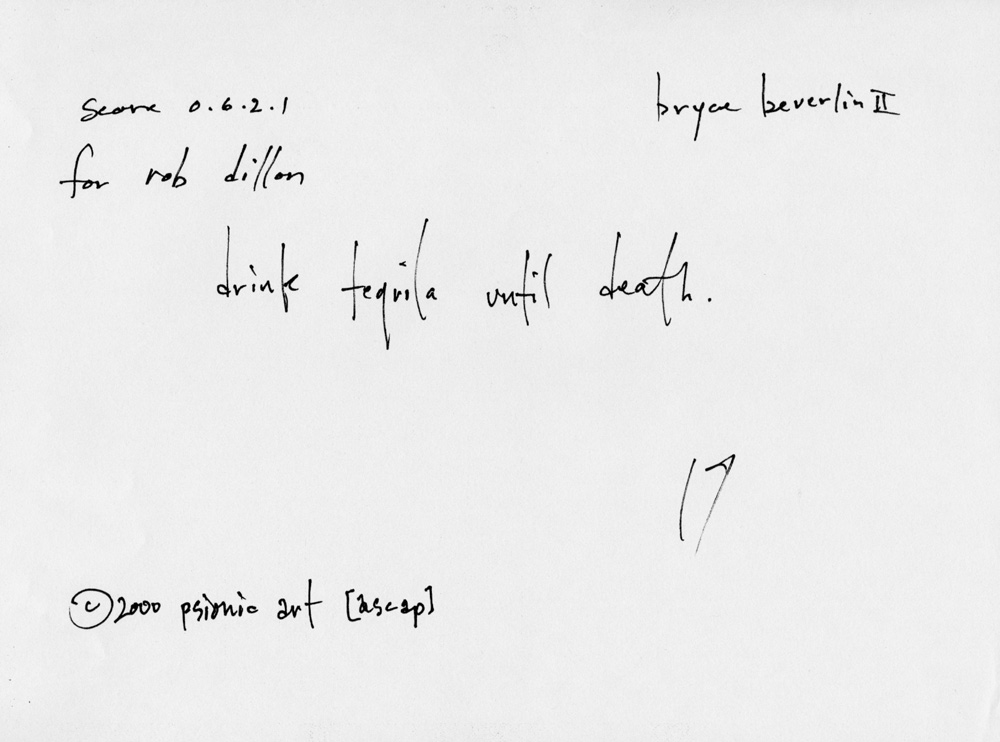 score 0.6.2.1
bryce beverlin II
for rob dillon
drink tequila until death.
17
©2000 psionic art [ascap]